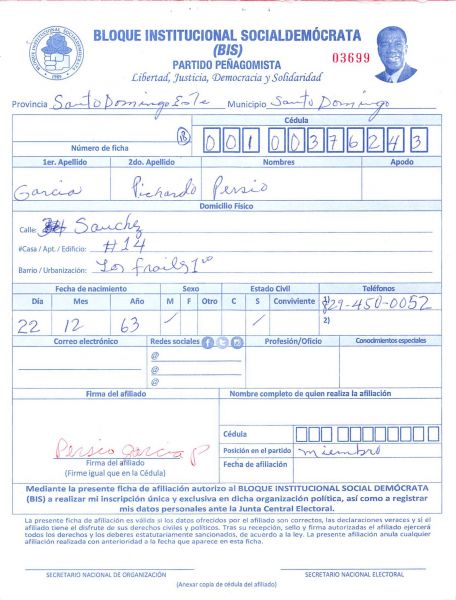 BLOQUE INSTITUCIONAL SOCIALDEMÓCRATA
(BIS)
PARTIDO PEÑAGOMISTA
03699
Libertad, Justicia, Democracia y Solidaridad
Provincia Santo Domingo Este Municipio Santo Domingo
Cédula
Número de ficha 18 00100376243
1er. Apellido 2do. Apellido Nombres Apodo
Garcia Pichardo Persio
Domicilio Físico
Calle: Sanchez
#Casa / Apt. / Edificio: #14
Barrio / Urbanización: Los Frailes 1ro
Fecha de nacimiento Sexo Estado Civil Teléfonos
Día Mes Año M F Otro C S Conviviente 1) 829-450-0052
22 12 63 / / 2)
Correo electrónico Redes sociales Profesión/Oficio Conocimientos especiales
@
@
@
Firma del afiliado Nombre completo de quien realiza la afiliación
Cédula
Persio Garcia P Posición en el partido miembro
Firma del afiliado Fecha de afiliación
(Firme igual que en la Cédula)
Mediante la presente ficha de afiliación autorizo al BLOQUE INSTITUCIONAL SOCIAL DEMÓCRATA
(BIS) a realizar mi inscripción única y exclusiva en dicha organización política, así como a registrar
mis datos personales ante la Junta Central Electoral.
La presente ficha de afiliación es válida si los datos ofrecidos por el afiliado son correctos, las declaraciones veraces y si el
afiliado tiene el disfrute de sus derechos civiles y políticos. Tras su recepción, sello y firma autorizadas el afiliado ejercerá
todos los derechos y los deberes estatutariamente sancionados, de acuerdo a la ley. La presente afiliación anula cualquier
afiliación realizada con anterioridad a la fecha que aparece en esta ficha.
SECRETARIO NACIONAL DE ORGANIZACIÓN SECRETARIO NACIONAL ELECTORAL
(Anexar copia de cédula del afiliado)